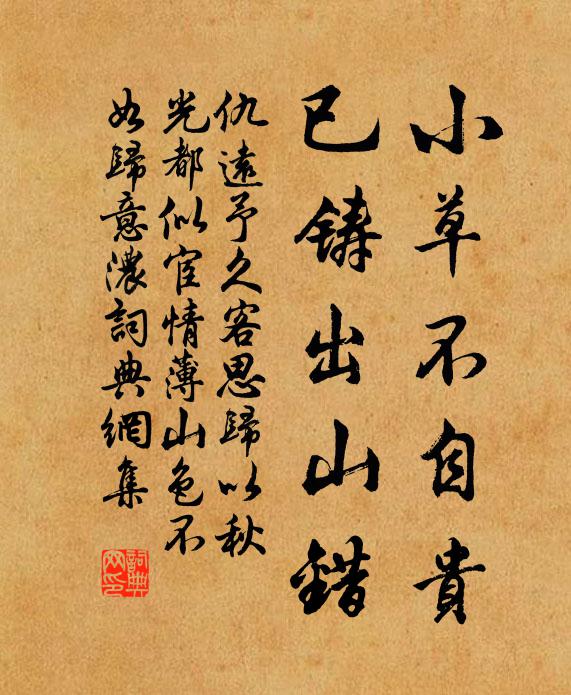 小草不自貴
已鋳出山錯
仇遠予久客思歸以秋
光都似宦情薄山色不
如歸意濃詞典網集
詞典
网印